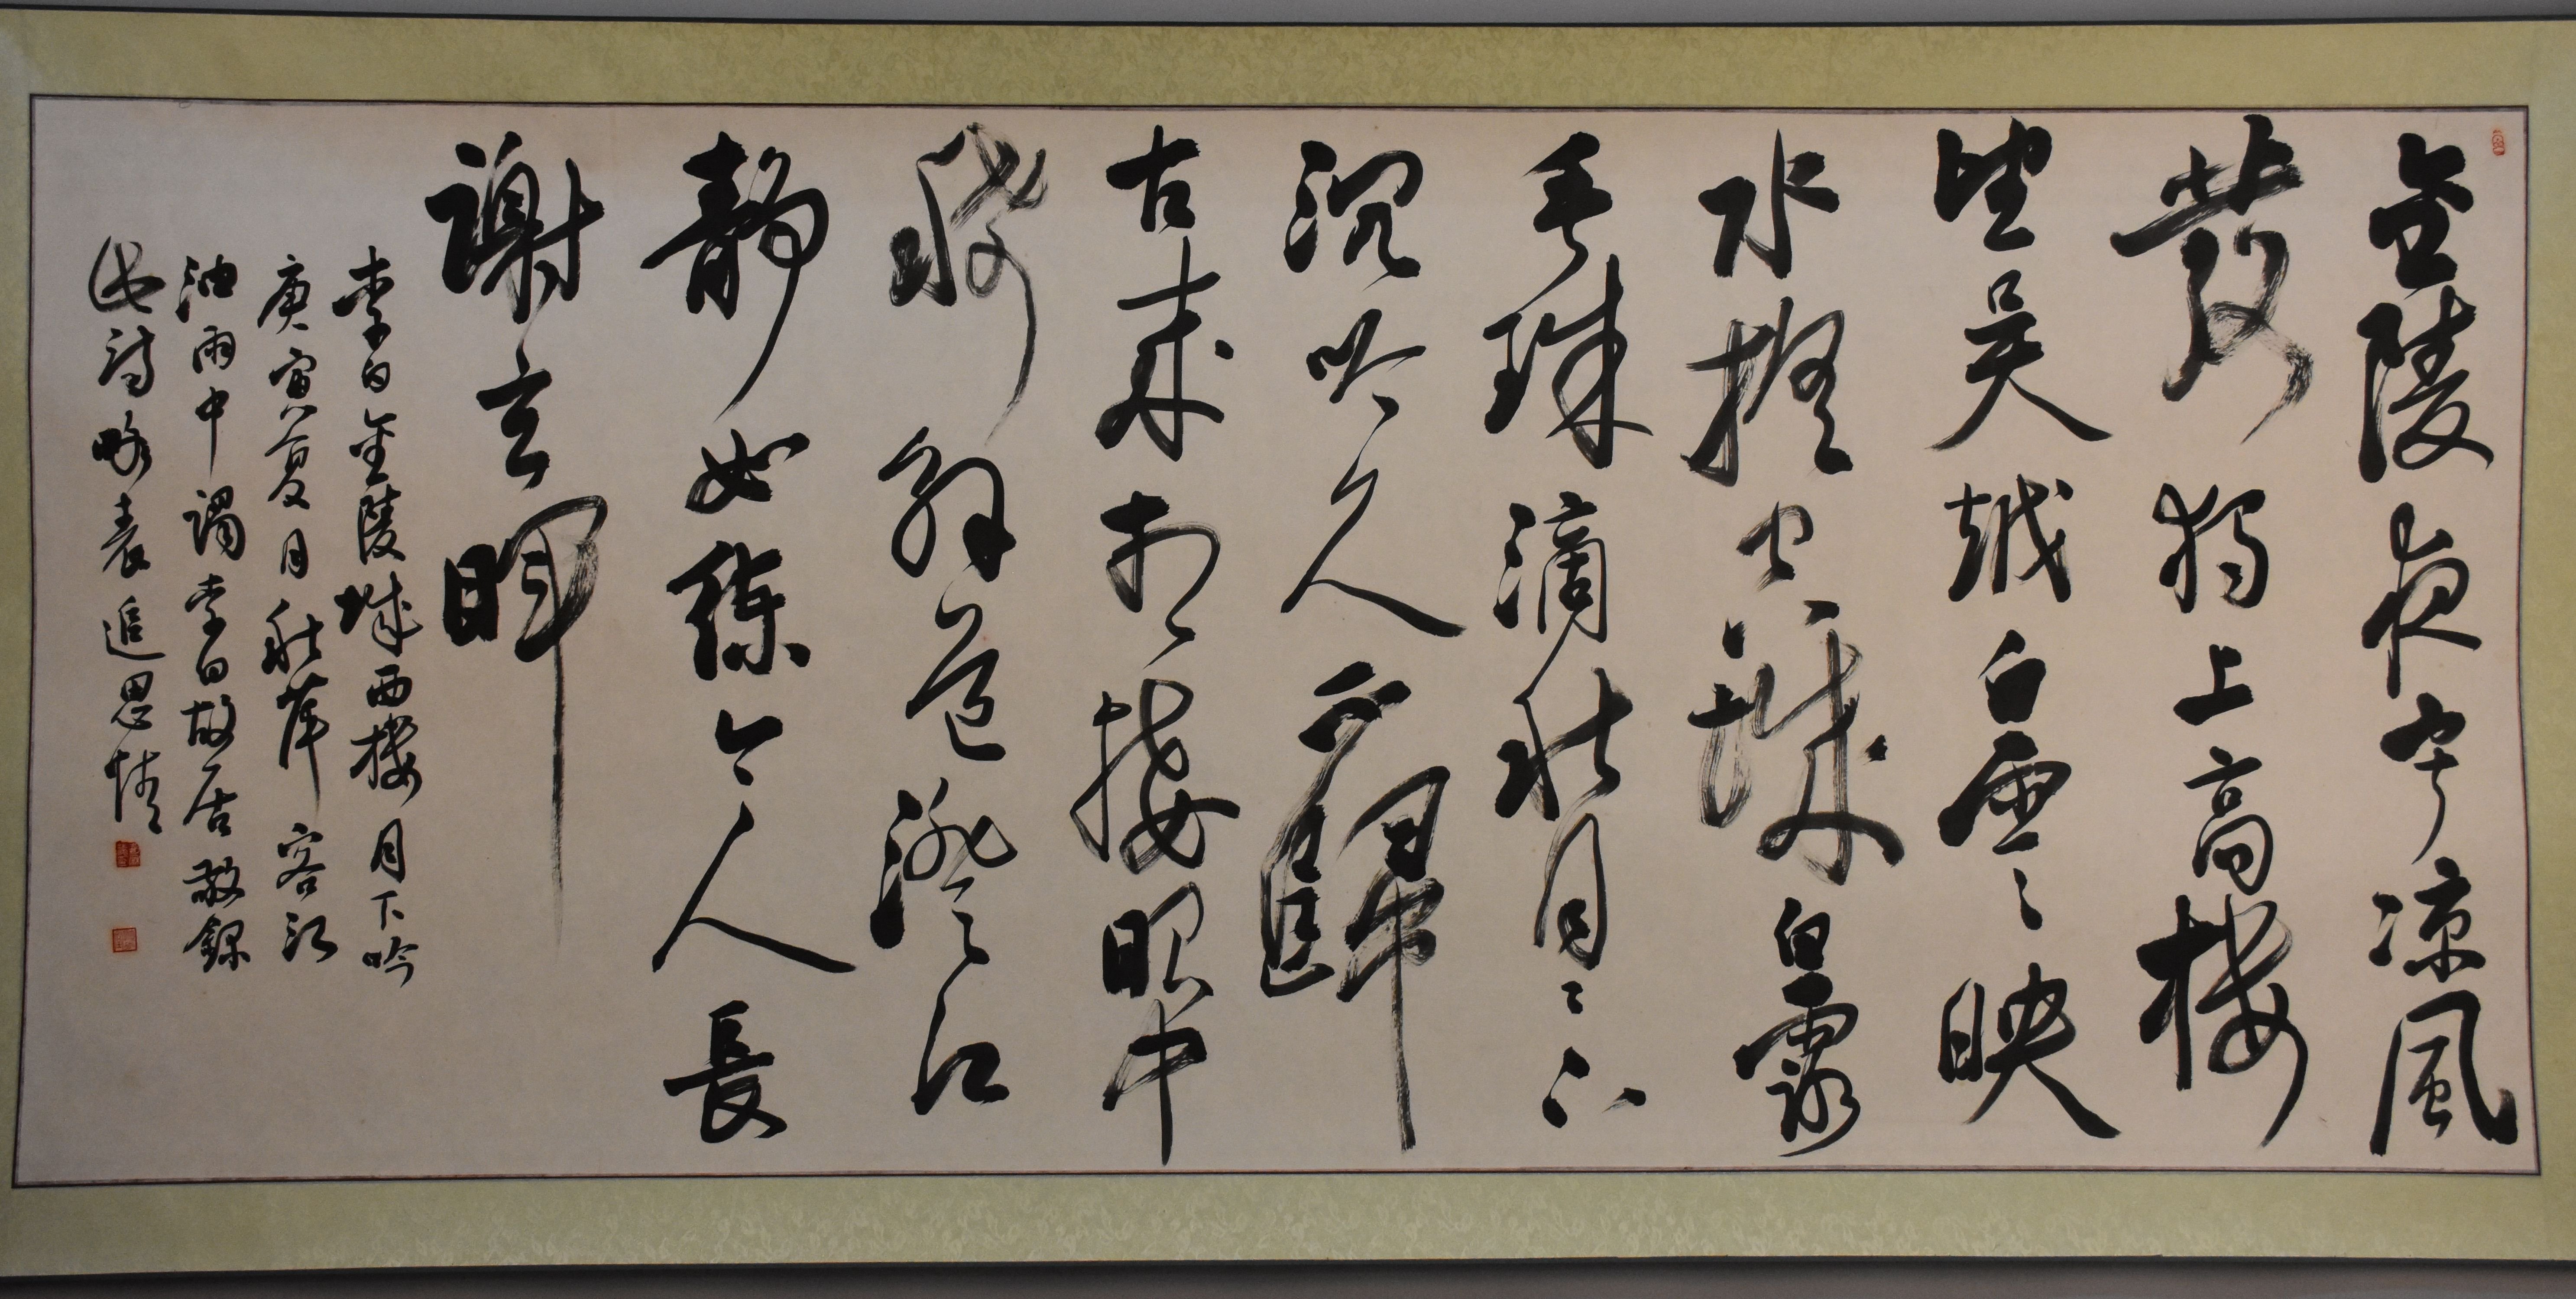 金陵夜寂涼風
發獨上高樓
望吳越白雲映
水搖空城白露
垂珠滴秋月々下
沉吟久不歸
古來相接眼中
稀解道澄江
靜如練令人長
謝玄暉
李白金陵城西樓月下吟
庚寅夏月秋 客江
油雨中謁李白故居敬錄
此詩略表追思情